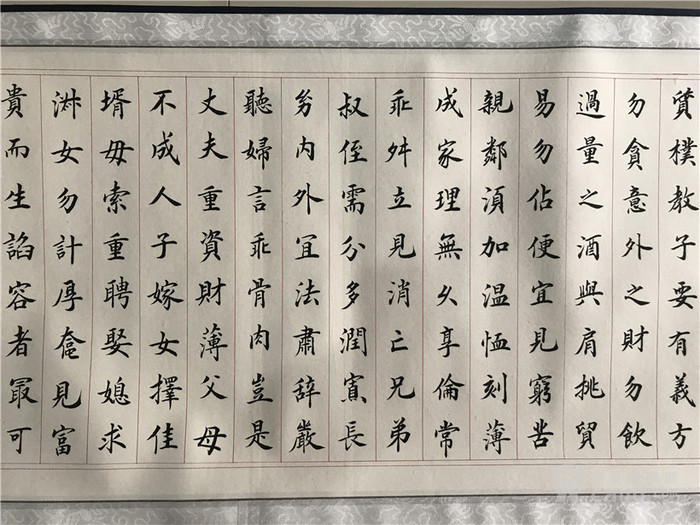 質樸教子要有義方
勿貪意外之財勿飲
過量之酒與肩挑貿
易勿佔便宜見窮苦
親鄰須加温恤刻薄
成家理無久享倫常
乖舛立見消亡兄弟
叔侄需分多潤寡長
幼内外宜法肅辞嚴
聽婦言乖骨肉豈是
丈夫重資財薄父母
不成人子嫁女擇佳
壻毋索重聘娶媳求
淑女勿計厚奩見富
貴而生諂容者最可